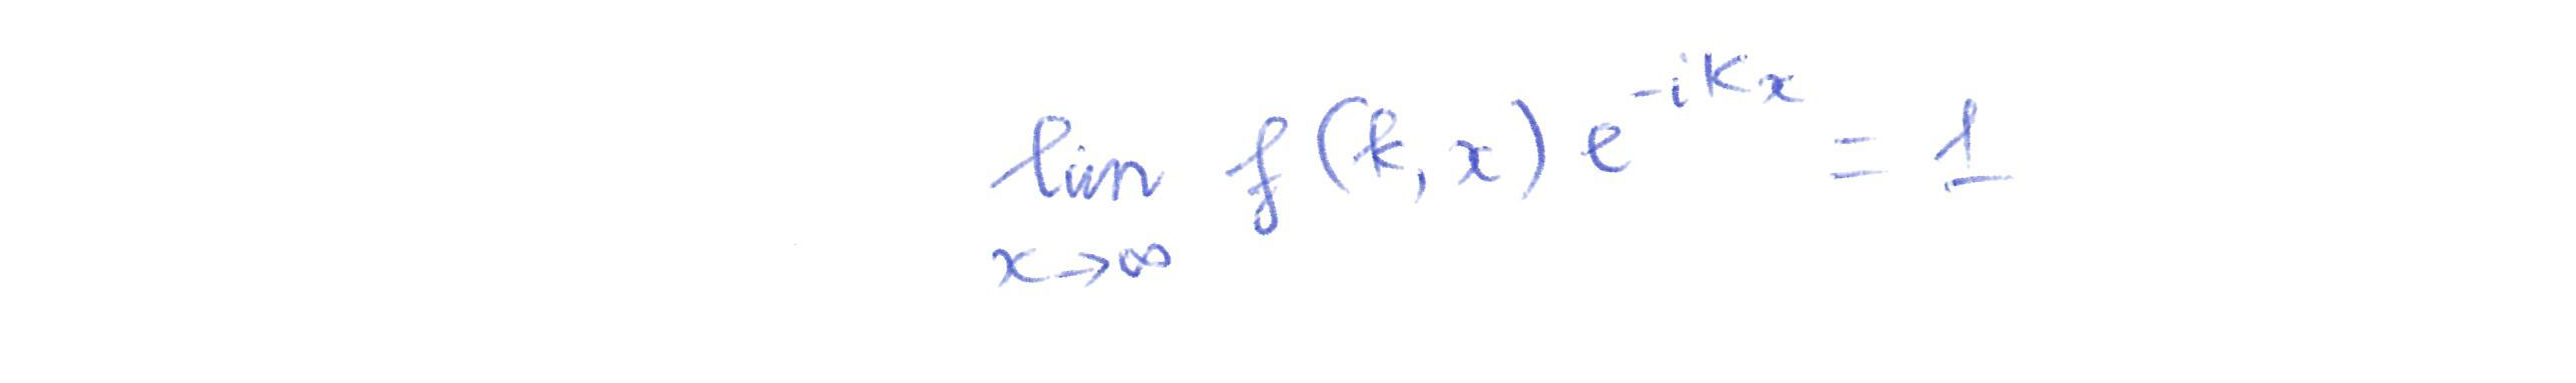 lim f(k,x) e^{-ikx} = 1
x→∞